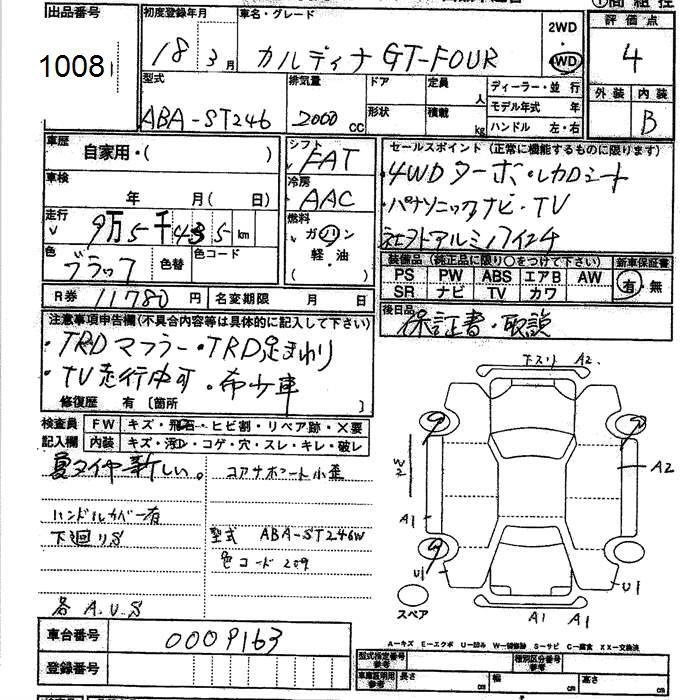 出品番号
1008
初度登録年月
18年3月
車名・グレード
カルディナ GT-FOUR
2WD
・
4WD
評価点
4
外装 内装
B
型式
ABA-ST246
排気量
2000cc
ドア
形状
定員 人
積載 kg
ディーラー・並行
モデル年式 年
ハンドル 左・右
車歴
自家用・( )
車検
年 月(日)
走行
9万5千435km
色
ブラック
色替
色コード
シフト
FAT
冷房
AAC
燃料
ガソリン
軽・油
( )
セールスポイント(正常に機能するものに限ります)
・4WDターボ・レカロシート
・パナソニックナビ・TV
社外アルミ17インチ
装備品(純正品に限り○をつけて下さい)
PS PW ABS エアB AW
SR ナビ TV カワ
新車保証書
有・無
R券 11780円
名変期限 月 日
後日品
保証書・取説
注意事項申告欄(不具合内容等は具体的に記入して下さい)
・TRDマフラー・TRD足まわり
・TV走行中可・希少車
修復歴 有〔箇所 〕
検査員
記入欄
FW キズ・飛石・ヒビ割・リペア跡・×要
内装 キズ・汚レ・コゲ・穴・スレ・キレ・破レ
夏タイヤ新しい。
コアサポート小歪
ハンドルカバー有
下廻りS
型式 ABA-ST246W
色コード 209
各 A.U.S
下スリ A2
W2
A2
A1
U1
U1
スペア
A1 A1
車台番号 0009163
登録番号
A-キズ E-エクボ U-凹み W-補修跡 S-サビ C-腐食 XX-交換済
型式指定番号
参考
種別区分番号
参考
車庫証明用
参考
長さ cm
幅 cm
高さ cm